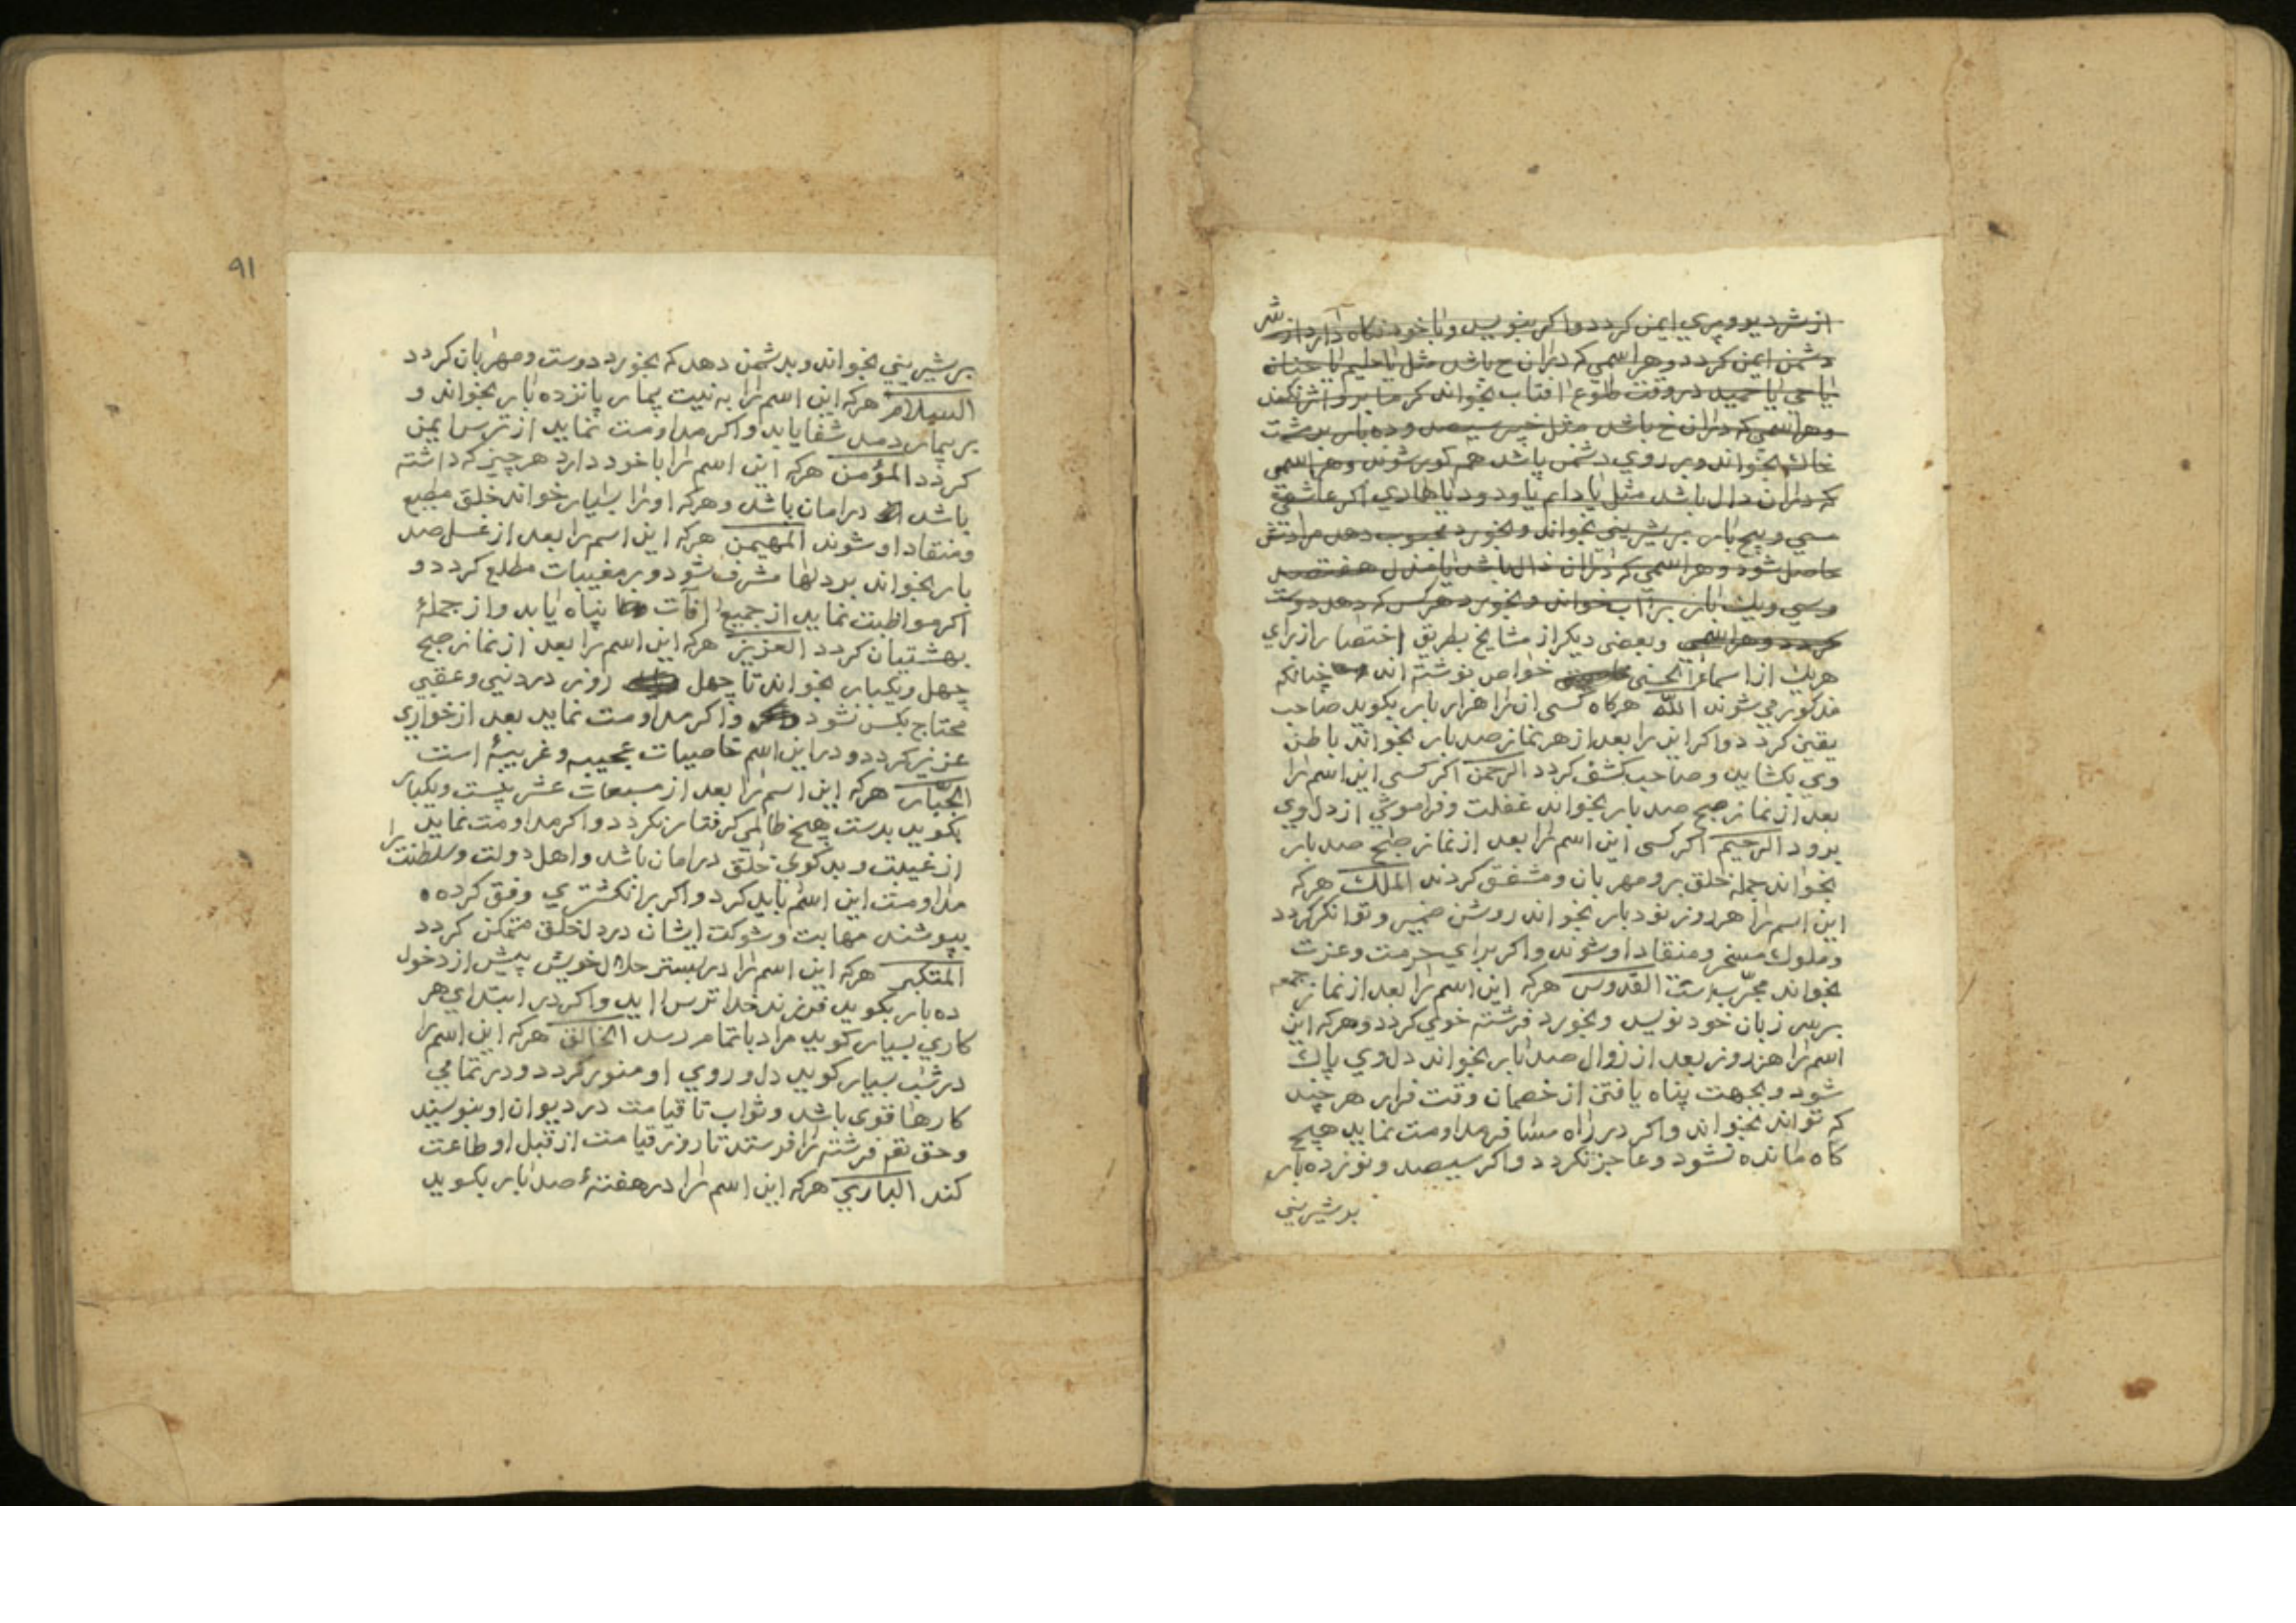 از شر ديو و پري ايمن كردد واكر بنويسد و با خود نكاه دارد از شر
دشمن ايمن كردد و هر اسمي كه در ان ح باشد مثل يا حليم يا حنان
يا حي يا حميد در وقت طلوع افتاب بخواند كرما برو اثر نكند
و هر اسمي كه در ان خ باشد مثل خبير سيصد و ده بار بر مشت
خاك بخواند و بر روي دشمن پاشد هم كور شوند و هر اسمي
كه در ان دال باشد مثل يا دايم يا ودود يا هادي اكر عاشقي
سي و پنج بار بر شيريني بخواند و بخورد محبوب دهد مرادش
حاصل شود و هر اسمي كه در ان ذال باشد يا مذل هفتصد
و سي و يك بار بر اب خواند و بخورد هركس كه دهد دوست
كردد و هر اسمي وبعضي ديكر از مشايخ بطريق اختصار از براي
هريك از اسماء الحسني خواص نوشته اند چنانكه
مذكور مي شوند الله هركاه كسي ان را هزار بار بكويد صاحب
يقين كردد واكر اين را بعد از هر نماز صد بار بخواند باطن
وي بكشايد و صاحب كشف كردد الرحمن اكر كسي اين اسم را
بعد از نماز صبح صد بار بخواند غفلت و فراموشي از دل وي
برود الرحيم اكر كسي اين اسم را بعد از نماز صبح صد بار
بخواند جمله خلق برو مهربان و مشفق كردند الملك هركه
اين اسم را هر روز نود بار بخواند روشن ضمير و توانكر كردد
و ملوك مسخر و منقاد او شوند واكر براي حرمت و عزت
بخواند مجرّب است القدوس هركه اين اسم را بعد از نماز جمعه
بر سر زبان خود نويسد و بخورد فرشته خوي كردد و هركه اين
اسم را هر روز بعد از زوال صد بار بخواند دل وي پاك
شود و بجهت پناه يافتن از خصمان وقت فرار هر چند
كه تواند بخواند واكر در راه مسافر مداومت نمايد هيچ
كاه مانده نشود و عاجز نكردد واكر سيصد و نوزده بار
بر شيريني
٩١
بر شيريني بخواند و بدشمن دهد كه بخورد دوست و مهربان كردد
السلام هركه اين اسم را به نيت بيمار پانزده بار بخواند و
بر بيمار دمد شفا يابد واكر مداومت نمايد از ترس ايمن
كردد المؤمن هركه اين اسم را با خود دارد هر چيز كه داشته
باشد در امان باشد و هركه او را بسيار خواند خلق مطيع
و منقاد او شوند المهيمن هركه اين اسم را بعد از غسل صد
بار بخواند بر دلها مشرف شود و بر مغيبات مطلع كردد و
اكر مواظبت نمايد از جميع افات پناه يابد و از جملۀ
بهشتيان كردد العزيز هركه اين اسم را بعد از نماز صبح
چهل و يكبار بخواند تا چهل روز در دنيي و عقبي
محتاج بكس نشود واكر مداومت نمايد بعد از خواري
عزيز كردد و در اين اسم خاصيات عجيبه و غريبۀ است
الجبّار هركه اين اسم را بعد از مسبعات عشر بيست و يكبار
بكويد بدست هيچ ظالمي كرفتار نكردد واكر مداومت نمايد
از غيبت و بد كوي خلق در امان باشد و اهل دولت و سلطنت را
مداومت اين اسم بايد كرد واكر بر انكشتري وفق كرده
بپوشند مهابت و شوكت ايشان در دل خلق متمكن كردد
المتكبر هركه اين اسم را در بستر حلال خويش پيش از دخول
ده بار بكويد فرزند خدا ترس ايد واكر در ابتداي هر
كاري بسيار كويد مراد باتمام رسد الخالق هركه اين اسم را
در شب بسيار كويد دل و روي او منور كردد و در تمامي
كارها قوي باشد و ثواب تا قيامت در ديوان او بنويسند
و حق تعم فرشته را فرستد تا روز قيامت از قبل او طاعت
كند الباري هركه اين اسم را در هفتۀ صد بار بكويد